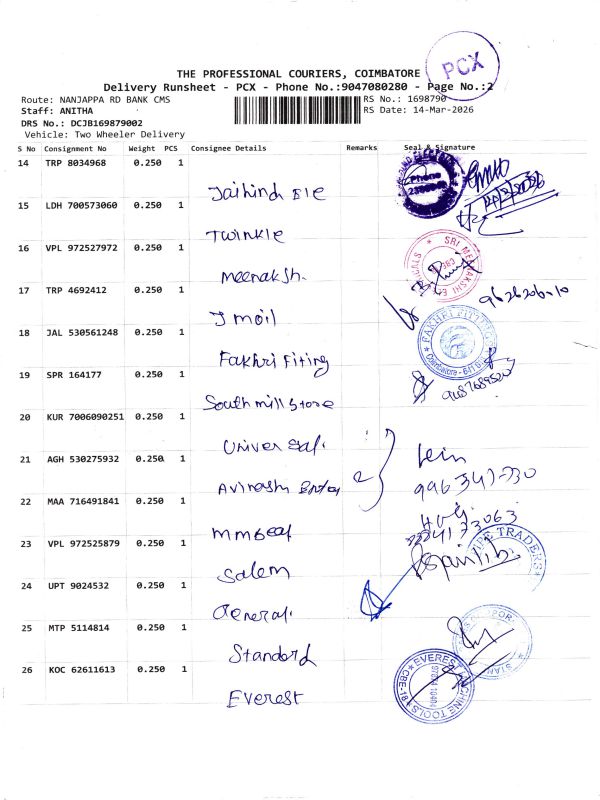 PCX
THE PROFESSIONAL COURIERS, COIMBATORE
Delivery Runsheet - PCX - Phone No.:9047080280 - Page No.:2
Route: NANJAPPA RD BANK CMS
RS No.: 1698790
Staff: ANITHA
RS Date: 14-Mar-2026
DRS No.: DCJB169879002
Vehicle: Two Wheeler Delivery
S No Consignment No Weight PCS Consignee Details Remarks Seal & Signature
14 TRP 8034968 0.250 1
Jaihind Ele
15 LDH 700573060 0.250 1
Twinkle
16 VPL 972527972 0.250 1
Meenaksh.
17 TRP 4692412 0.250 1
J moil
18 JAL 530561248 0.250 1
Fakhri Fiting
19 SPR 164177 0.250 1
South mill store
20 KUR 7006090251 0.250 1
21 AGH 530275932 0.250 1
Avinash
22 MAA 716491841 0.250 1
23 VPL 972525879 0.250 1
Salem
24 UPT 9024532 0.250 1
General
25 MTP 5114814 0.250 1
Standord
26 KOC 62611613 0.250 1
Everest